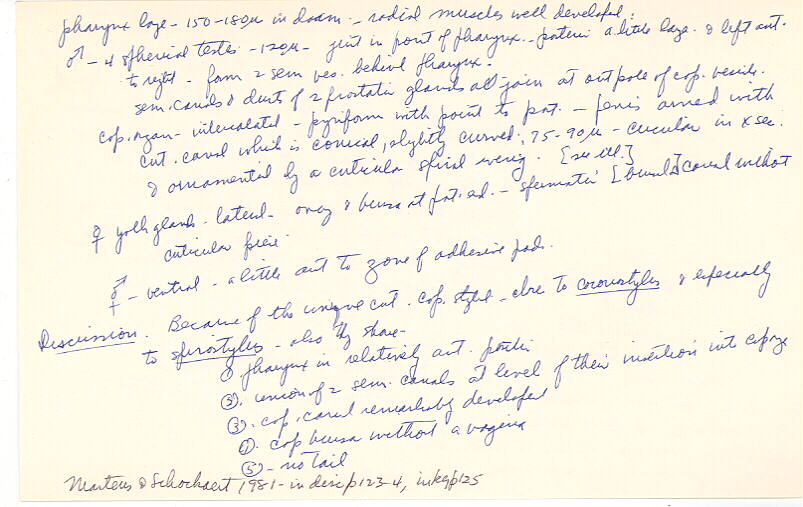 pharynx large - 150-180µ in diam. - radial muscles well developed.
♂ - 4 spherical testes - 120µ - just in front of pharynx. - posterior a little large. & left ant.
to right - form 2 sem ves. behind pharynx.
sem. canals & ducts of 2 prostatic glands all join at ant pole of cop. vesicle.
cop. organ - intercalated - pyriform with point to post. - penis armed with
cut. canal which is conical, slightly curved; 75-90µ - circular in x sec.
& ornamented by a cuticular spiral [see ill.]
♀ yolk glands - lateral - ovary & bursa at post. ed. - spermatic [bursal] canal without
cuticular piece
- ventral - a little ant to zone of adhesive pads.
Discussion. Because of the unique cut. cop. stylet - close to coronostyles & especially
to spirostyles - also they share -
① pharynx in relatively ant. position
②. union of 2 sem. canals at level of their insertion into cop organ
③. cop. canal remarkably developed
④. cop bursa without a vagina
⑤ - no tail
Martens & Schockaert 1981 - in disc p123-4, in key p125